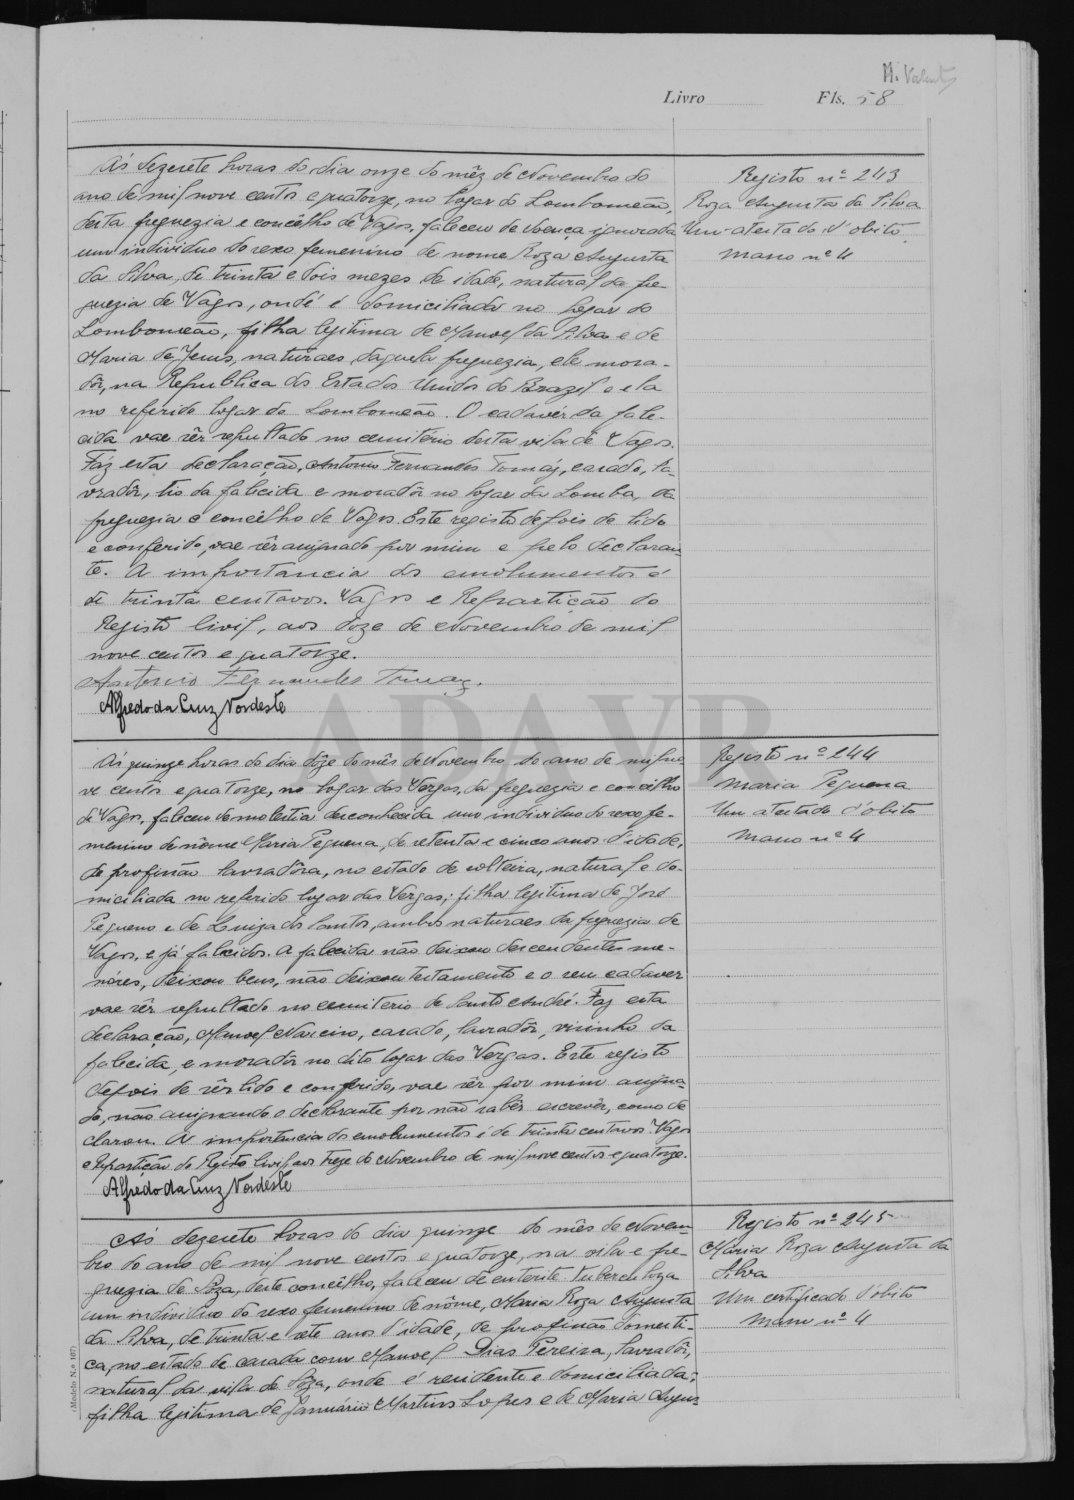 M. Valente
Livro Fls. 58
Registo nº 243
Roza Augusta da Silva
Um atestado d'obito
Maço nº 4
Ás dezesete horas do dia onze do mêz de Novembro do
ano de mil nove centos e quatorze, no logar do Lombomeão,
desta freguezia e concêlho de Vagos, faleceu de doença ignorada
um individuo do sexo femenino de nome Roza Augusta
da Silva, de trinta e dois mezes de idade, natural da fre
guezia de Vagos, onde é domiciliada no logar do
Lombomeão, filha legitima de Manoel da Silva e de
Maria de Jesus, naturaes daquela freguezia, ele mora-
dôr, na Republica dos Estados Unidos do Brazil e ela
no referido logar do Lombomeão. O cadavér da fale-
cida vae sêr sepultado no cemitério desta vila de Vagos.
Faz esta declaração, Antonio Fernandes Tomáz, casado, la
vradôr, tio da falecida e moradôr no logar da Lomba, da
freguezia e concêlho de Vagos. Este registo depois de lido
e conferido, vae sêr assignado por mim e pelo declaran-
te. A importancia dos emolumentos é
de trinta centavos. Vagos e Repartição do
Registo Civil, aos doze de Novembro de mil
nove centos e quatorze.
Antonio Fernandes Tomaz.
Alfredo da Cruz Nordeste
ADAVR
Registo nº 244
Maria Pequena
Um atestado d'obito
Maço nº 4
Ás quinze horas do dia dôze do mês de Novembro do ano de mil no
ve centos e quatorze, no logar das Vergas, da freguezia e concêlho
de Vagos, faleceu de molestia desconhecida um individuo do sexo fe-
menino de nôme Maria Pequena, de setenta e cinco anos d'idade,
de profissão lavradôra, no estado de solteira, natural e do-
miciliada no referido logar das Vergas; filha legitima de José
Pequeno e de Luiza dos Santos, ambos naturaes da freguezia de
Vagos, e já falecidos. A falecida não deixou descendentes me-
nóres, deixou bens, não deixou testamento e o seu cadaver
vae sêr sepultado no cemiterio de Santo André. Faz esta
declaração, Manoel Narciso, casado, lavradôr, visinho da
falecida, e moradôr no dito logar das Vergas. Este registo
depois de sêr lido e conferido, vae sêr por mim assigna-
do, não assignando o declarante por não sabêr escrevêr, como de
clarou. A importancia dos emolumentos é de trinta centavos. Vagos
e Repartição do Registo Civil aos treze de Novembro de mil nove centos e quatorze.
Alfredo da Cruz Nordeste
Registo nº 245
Maria Roza Augusta da
Silva
Um certificado d'obito
Maço nº 4
Ás dezesete horas do dia quinze do mês de Novem-
bro do ano de mil nove centos e quatorze, na vila e fre-
guezia de Sôza, deste concêlho, faleceu de enterite tuberculoza
um individuo do sexo femenino de nôme, Maria Roza Augusta
da Silva, de trinta e sete anos d'idade, de profissão domesti-
ca, no estado de casada com Manoel Dias Pereira, lavradôr,
natural da vila de Sôza, onde é residente e domiciliada;
filha legitima de Januario Martins Lopes e de Maria Augus-
(Modelo N.º 167)